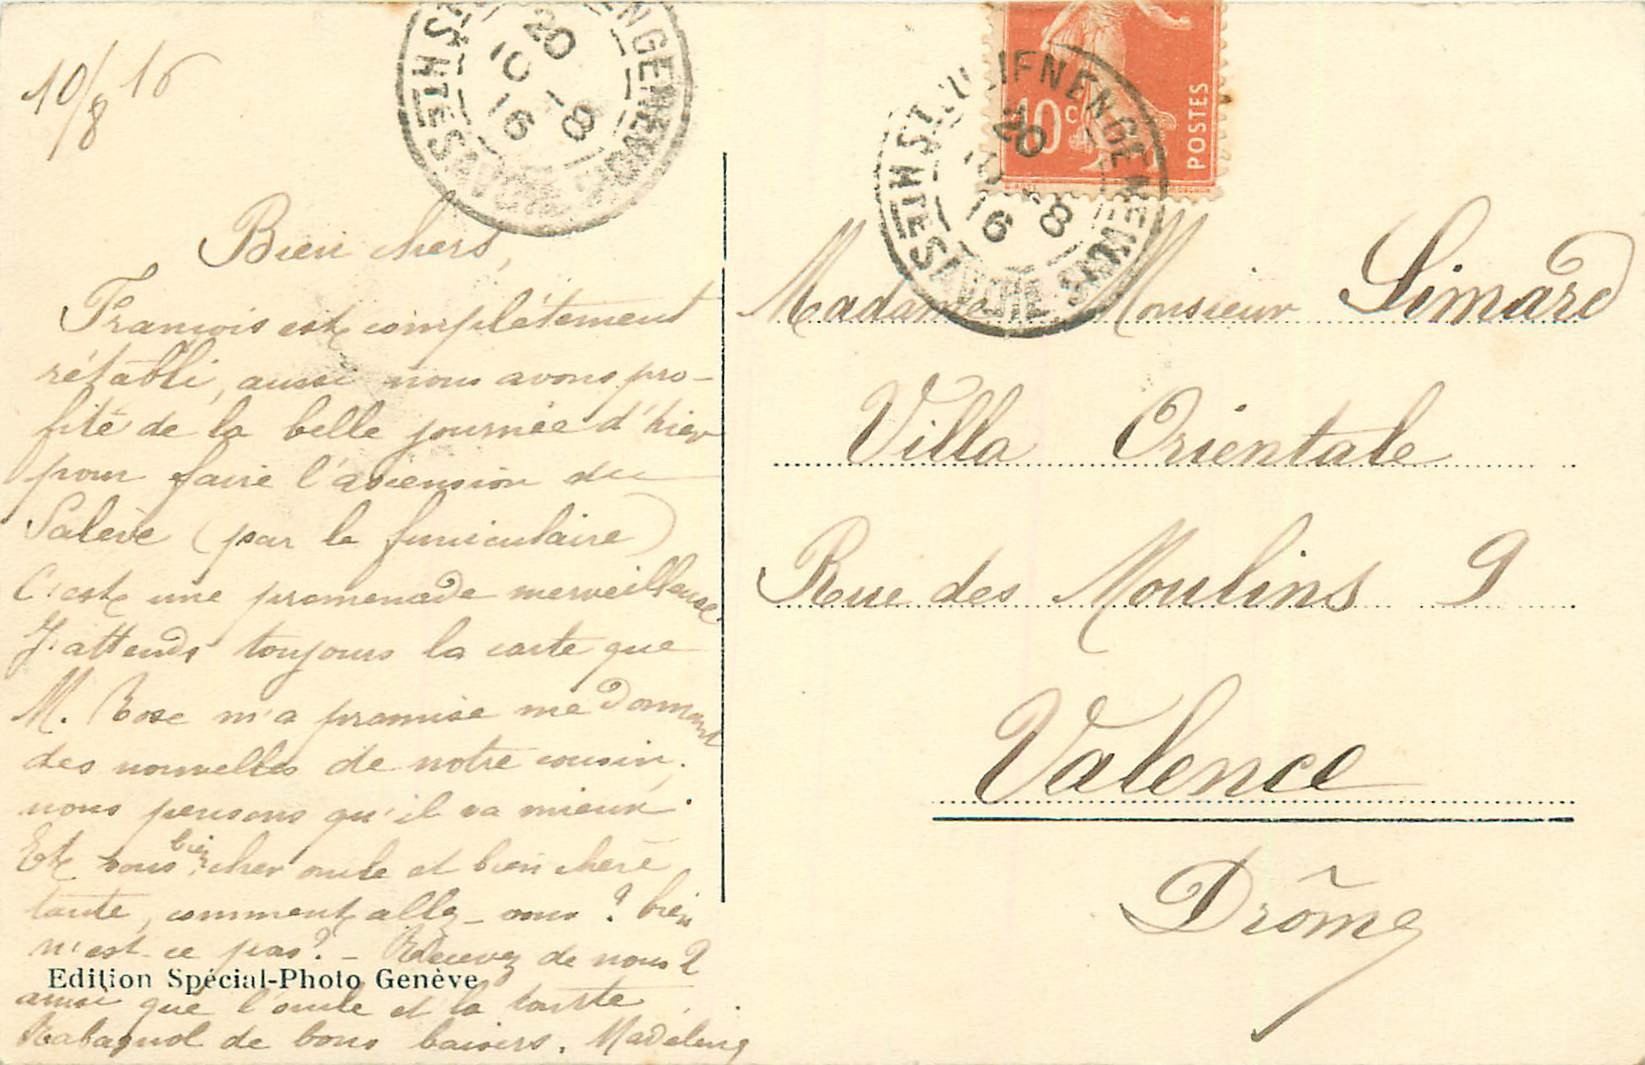 10/8 16
Bien chers,
François est complétement
rétabli, aussi nous avons pro-
fité de la belle journée d'hier
pour faire l'asiension du
Salève (par le funiculaire)
C'est une promenade merveilleuse
J'attends toujours la carte que
M. Rose m'a promise me donnant
des nouvelles de notre cousin,
nous pensons qu'il va mieux.
Et vous bien cher oncle et bien chère
tante, comment allez-vous? bien
n'est-ce pas? - Recevez de nous 2
ainsi que l'oncle et la tante
Rabagnol de bons baisers. Madeleine
Edition Spécial-Photo Genève
ST JULIEN EN GENEVOIS
HTE SAVOIE
20
10 -8
16
10c
POSTES
ST JULIEN EN GENEVOIS
HTE SAVOIE
20
10 -8
16
Madame Monsieur Simard
Villa Orientale
Rue des Moulins 9
Valence
Drôme